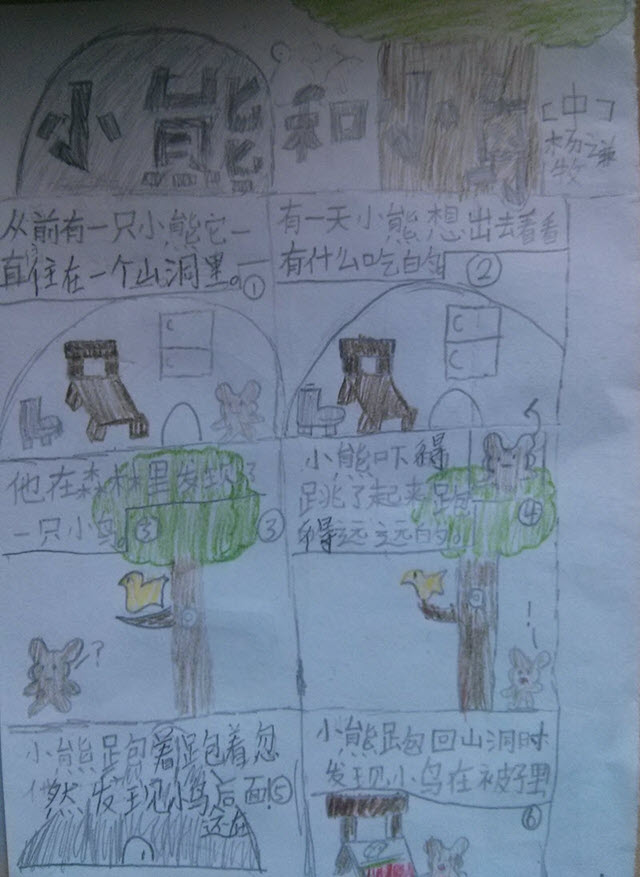 小熊和小鸟
[中]
杨
牧
从前有一只小熊它一
直住在一个山洞里。①
有一天小熊想出去看看
有什么吃的 ②
C
C
C
C
他在森林里发现了
一只小鸟。③
③
?
小熊吓得
跳了起来跑
得远远的。
④
!
小熊跑着跑着忽
然发现小鸟后面!⑤
还在
小熊跑回山洞时
发现小鸟在被子里
⑥